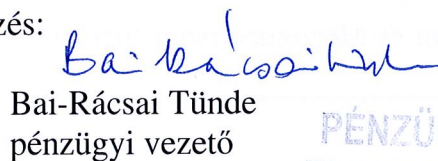 zés:
Bai-Rácsai Tünde
Bai-Rácsai Tünde
pénzügyi vezető
PÉNZÜ